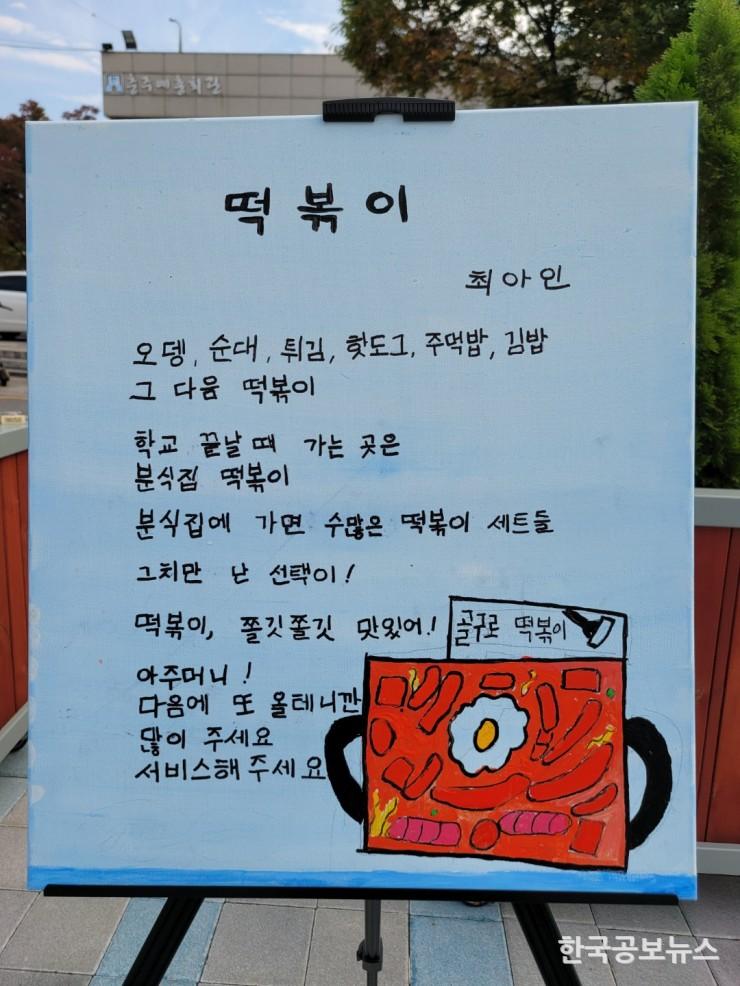 충주예총회관
떡볶이
최아인
오뎅, 순대, 튀김, 핫도그, 주먹밥, 김밥
그 다음 떡볶이
학교 끝날때 가는 곳은
분식집 떡볶이
분식집에 가면 수많은 떡볶이 세트들
그치만 난 선택이!
떡볶이, 쫄깃쫄깃 맛있어!
골구로 떡볶이
아주머니!
다음에 또 올테니깐
많이 주세요
서비스해주세요
한국공보뉴스